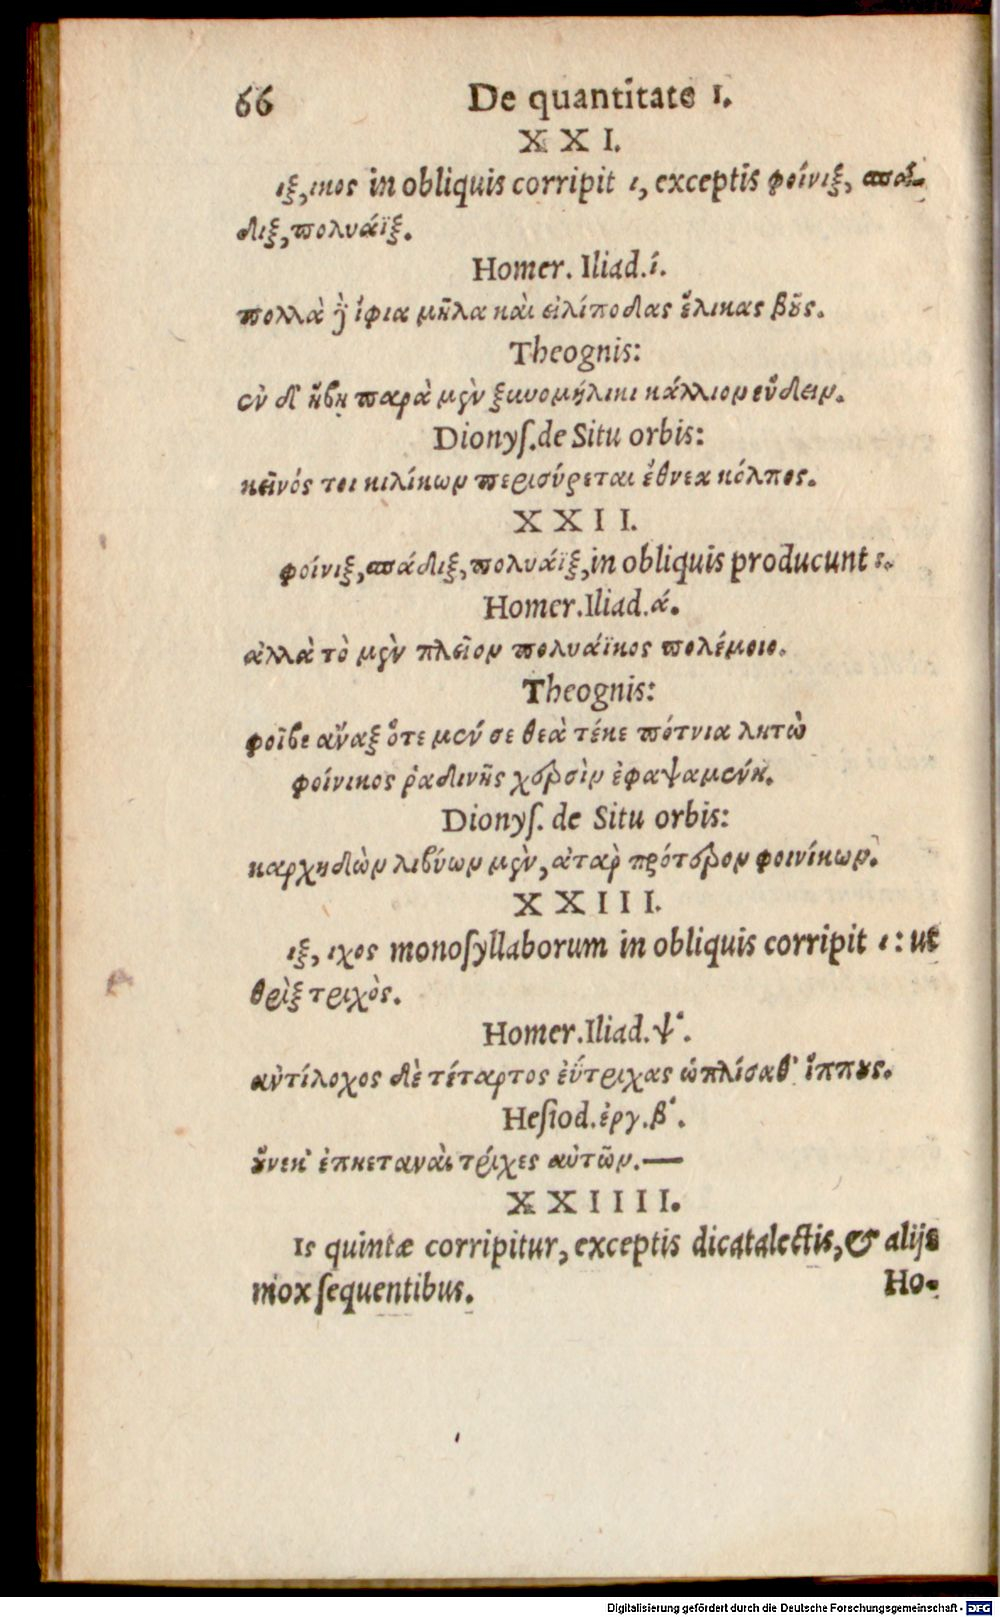 66 De quantitate ι.
X X I.
ιξ, ικος in obliquis corripit ι, exceptis φοίνιξ, σπάδιξ,
διξ, πολυάϊξ.
Homer. Iliad. ί.
πολλὰ ἴφια μῆλα καὶ εἰλίποδας ἕλικας βοῦς.
Theognis:
ἐν δ' ἥβῃ παρὰ μὲν ξωυομήλικι κάλλιον εὕδειν.
Dionyſ. de Situ orbis:
κεῖνός τοι κιλίκων περισύρεται ἔθνεα κόλπος.
X X I I.
φοίνιξ, σπάδιξ, πολυάϊξ, in obliquis producunt ι.
Homer. Iliad. ά.
ἀλλὰ τὸ μὲν πλεῖον πολυάϊκος πολέμοιο.
Theognis:
φοῖβε ἄναξ ὅτε μέν σε θεὰ τέκε πότνια λητὼ
φοίνικος ῥαδινῆς χερσὶν ἐφαψαμένη.
Dionyſ. de Situ orbis:
καρχηδὼν λιβύων μὲν, ἀτὰρ πρότερον φοινίκων.
X X I I I.
ιξ, ιχος monoſyllaborum in obliquis corripit ι: ut
θρὶξ τριχὸς.
Homer. Iliad. ψ'.
αὐτίλοχος δὲ τέταρτος ἐΰτριχας ὡπλίσαθ' ἵππους.
Heſiod. ἐργ. β'.
οὕνεκ' ἐπηεταναὶ τρίχες αὐτῶν.—
X X I I I I.
ις quintæ corripitur, exceptis dicatalectis, & alijs
mox ſequentibus. Ho-
Digitalisierung gefördert durch die Deutsche Forschungsgemeinschaft - DFG